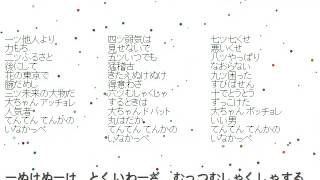 一ツ他人より
力もち
二ツふるさと
後にして
花の東京で
腕だめし
三ツ未来の大物だ
大ちゃん アッチョレ
人気者
てんてん てんかの
いなかっぺ
四ツ弱気は
見せないで
五ツいつでも
猛稽古
きたえぬけぬけ
得意わざ
六ツむしゃくしゃ
するときは
大ちゃん ドバット
丸はだか
てんてん てんかの
いなかっぺ
七ツ七くせ
悪いくせ
八ツやっぱり
なおらない
九ツ困った
すびばせん
十でとうとう
ずっこけた
大ちゃん ボッチョレ
いい男
てんてん てんかの
いなかっぺ
ーぬけぬーけ とくいわーざ むっつむしゃくしゃする